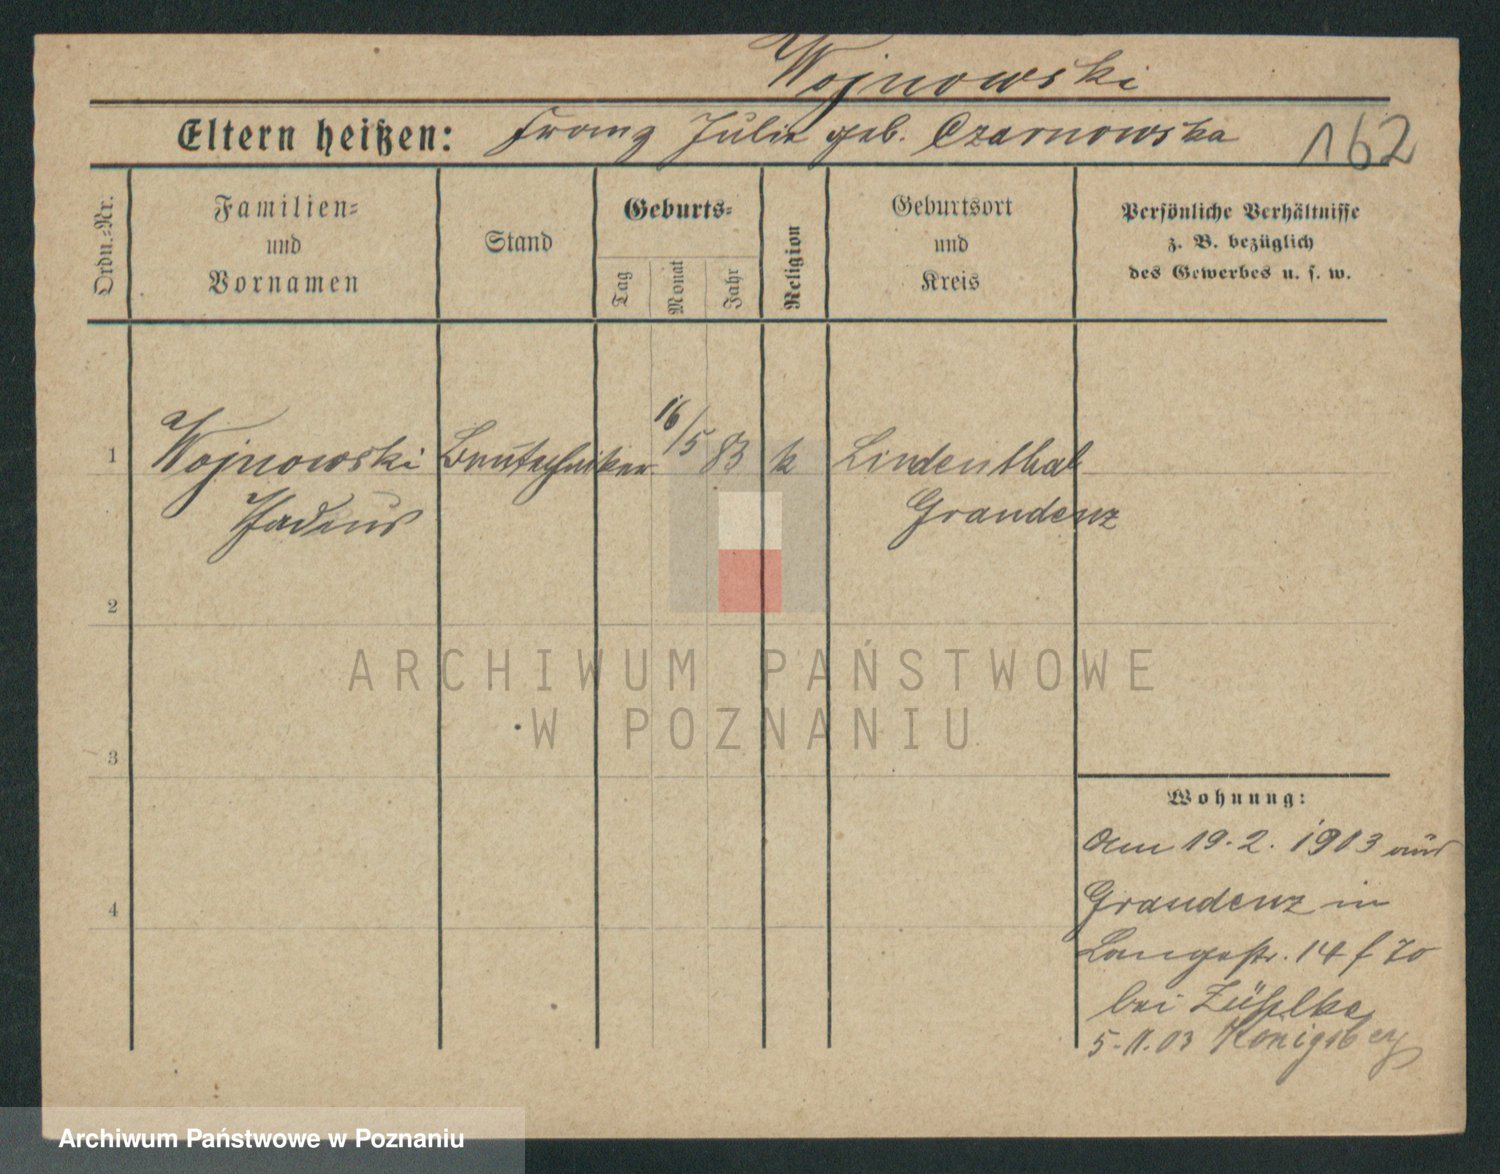 Wojnowski
Eltern heißen: Franz Julie geb. Czarnowska 162
Ordn.-Nr.
Familien-
und
Vornamen
Stand
Geburts-
Tag
Monat
Jahr
Religion
Geburtsort
und
Kreis
Persönliche Verhältnisse
z. B. bezüglich
des Gewerbes u. s. w.
1 Wojnowski Bautechniker 16/5 83 k Lindenthal
Thadeus Graudenz
2
3
4
ARCHIWUM PAŃSTWOWE
W POZNANIU
Wohnung:
Am 19.2.1903 aus
Graudenz in
Langestr. 14 f
bei Zühlke
5.11.03 Königsberg
Archiwum Państwowe w Poznaniu